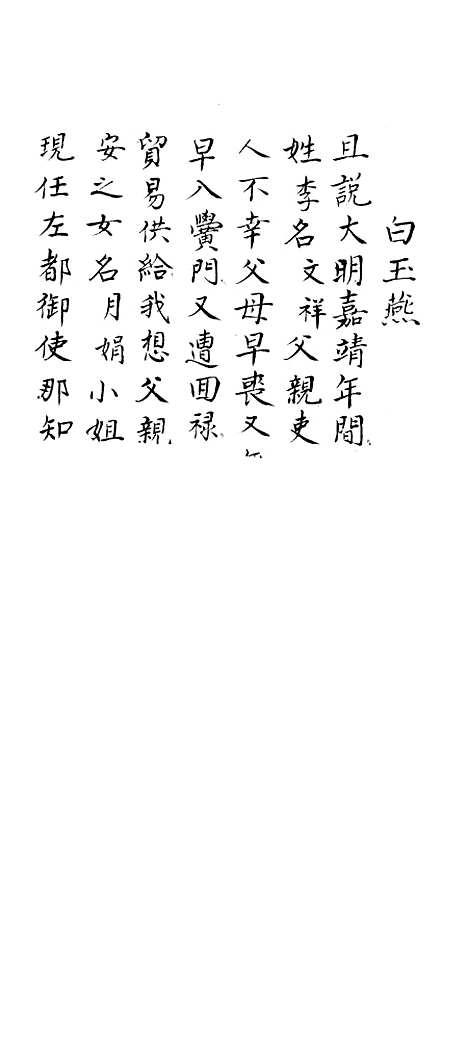 白玉燕
且説大明嘉靖年間
姓李名文祥父親吏
人不幸父母早喪又
早入黌門又遭回禄
貿易供給我想父親
安之女名月娟小姐
現任左都御使那知